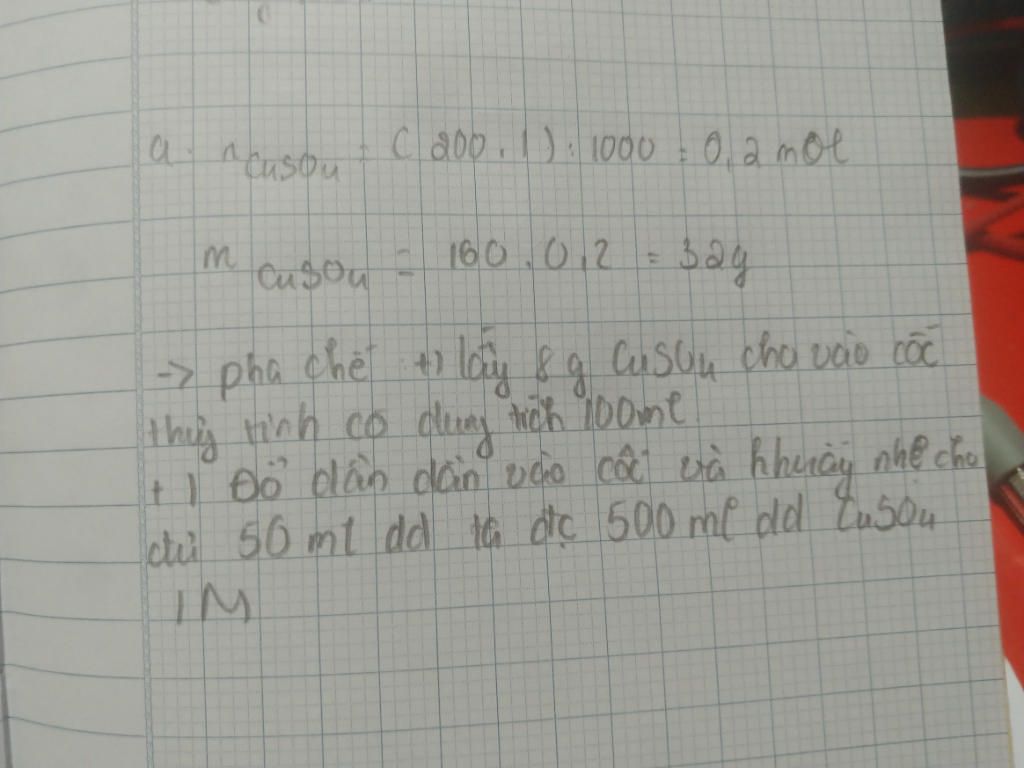 a. nCuSO4 = (200.1):1000 = 0,2 mol
mCuSO4 = 160.0,2 = 32g
-> pha chế +) lấy 8g CuSO4 cho vào cốc
thủy tinh có dung tích 100ml
+) Đổ dần dần vào cốc và khuấy nhẹ cho
đủ 50 ml dd ta đc 500 ml dd CuSO4
1M